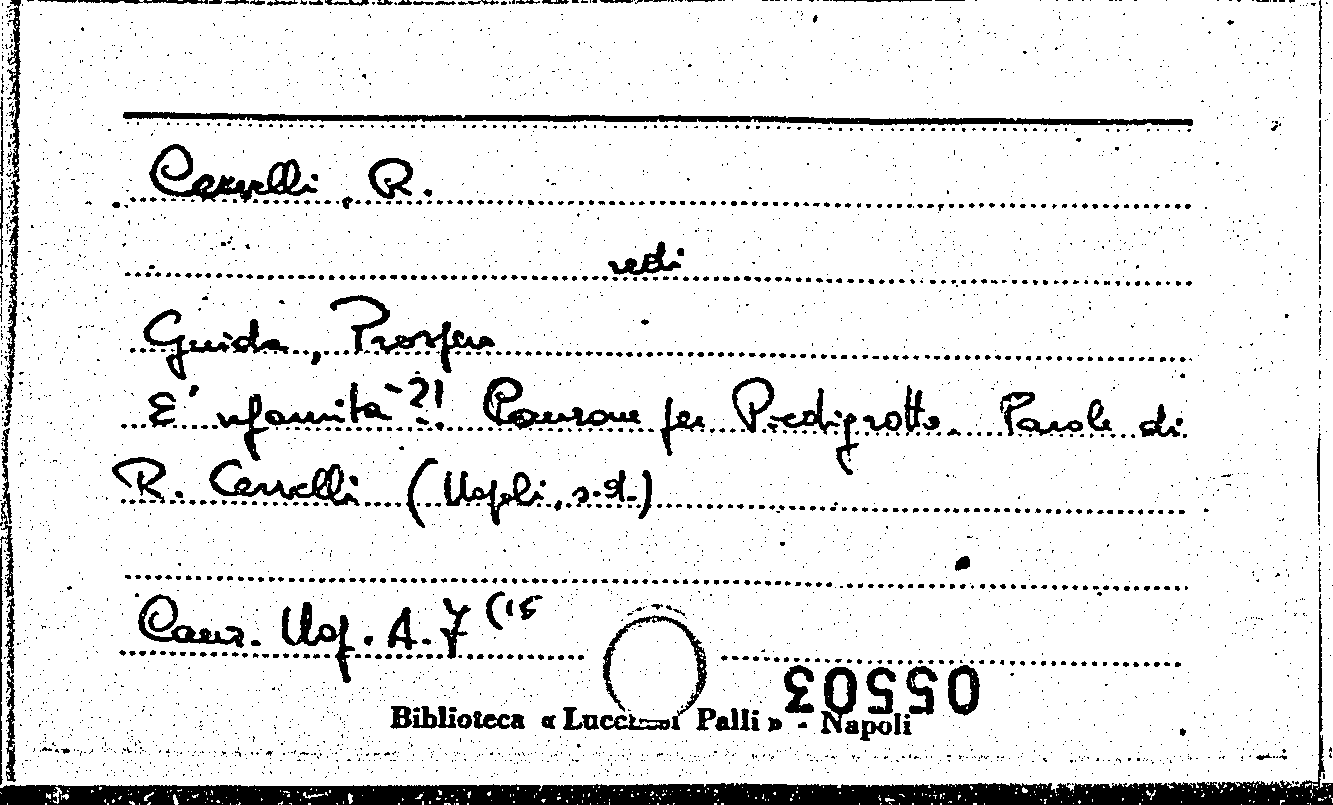 Cervelli, R.
vedi
Guida, Prospero
E' nfamità?! Canzone per Piedigrotta. Parole di
R. Cervelli (Napoli, s.d.)
Canz. Nap. A. 7 (15
05503
Biblioteca « Lucchesi Palli » - Napoli